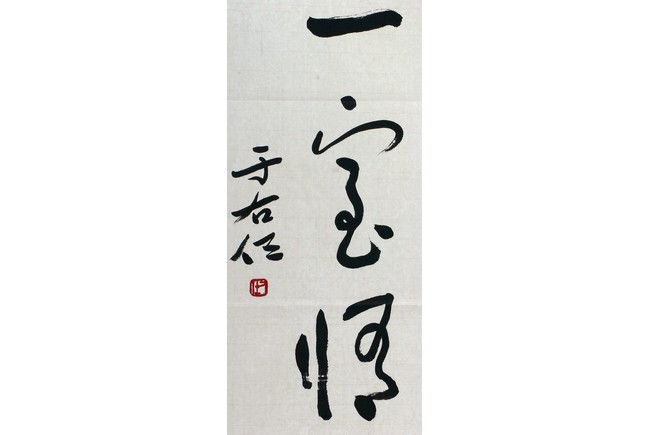 一室情
于右任